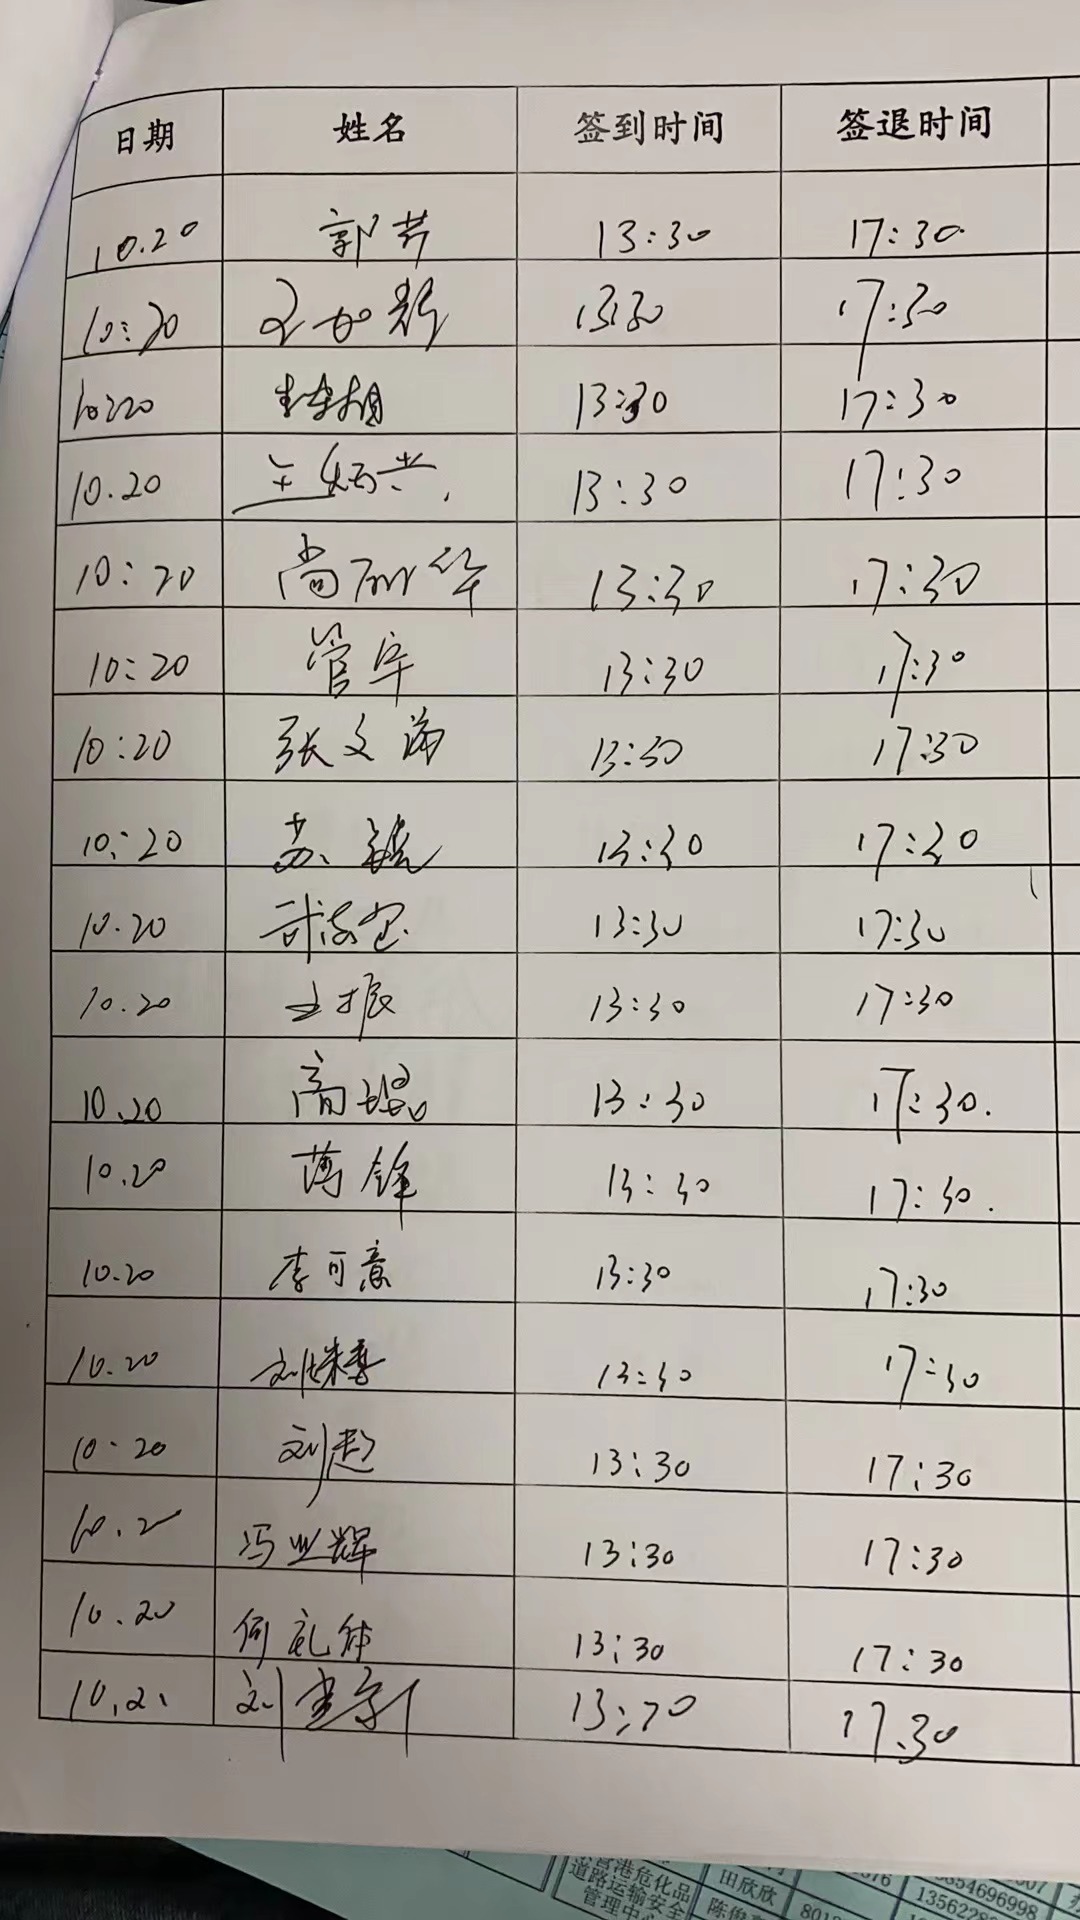 日期 姓名 签到时间 签退时间
10.20 郭芳 13:30 17:30
10:20 13:30 17:30
10:20 13:30 17:30
10.20 王炳兴 13:30 17:30
10:20 尚丽华 13:30 17:30
10:20 管宇 13:30 17:30
10:20 张文涛 13:30 17:30
10:20 苏 13:30 17:30
10.20 13:30 17:30
10.20 王振 13:30 17:30
10.20 高堒 13:30 17:30.
10.20 薄锋 13:30 17:30.
10.20 李可意 13:30 17:30
10.20 刘 13:30 17:30
10:20 刘超 13:30 17:30
10.2 冯业辉 13:30 17:30
10.20 何礼体 13:30 17:30
10.2 刘 13:30 17.30
营港危化品
道路运输安全
管理中心
田欣欣
陈俊
8012
376
3654696998
1356228
007